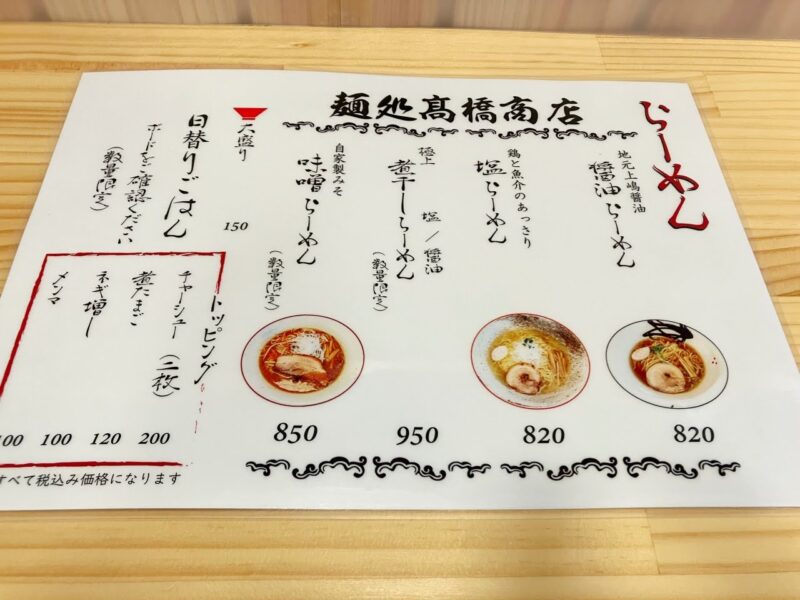 麺処髙橋商店
らーめん
地元上嶋醤油
醤油らーめん
820
鶏と魚介のあっさり
塩らーめん
820
極上 塩/醤油
煮干しらーめん
(数量限定)
950
自家製みそ
味噌らーめん
(数量限定)
850
大盛り
150
日替りごはん
ボードをご確認ください
(数量限定)
トッピング
チャーシュー(二枚)
200
煮たまご
120
ネギ増し
100
メンマ
100
すべて税込み価格になります